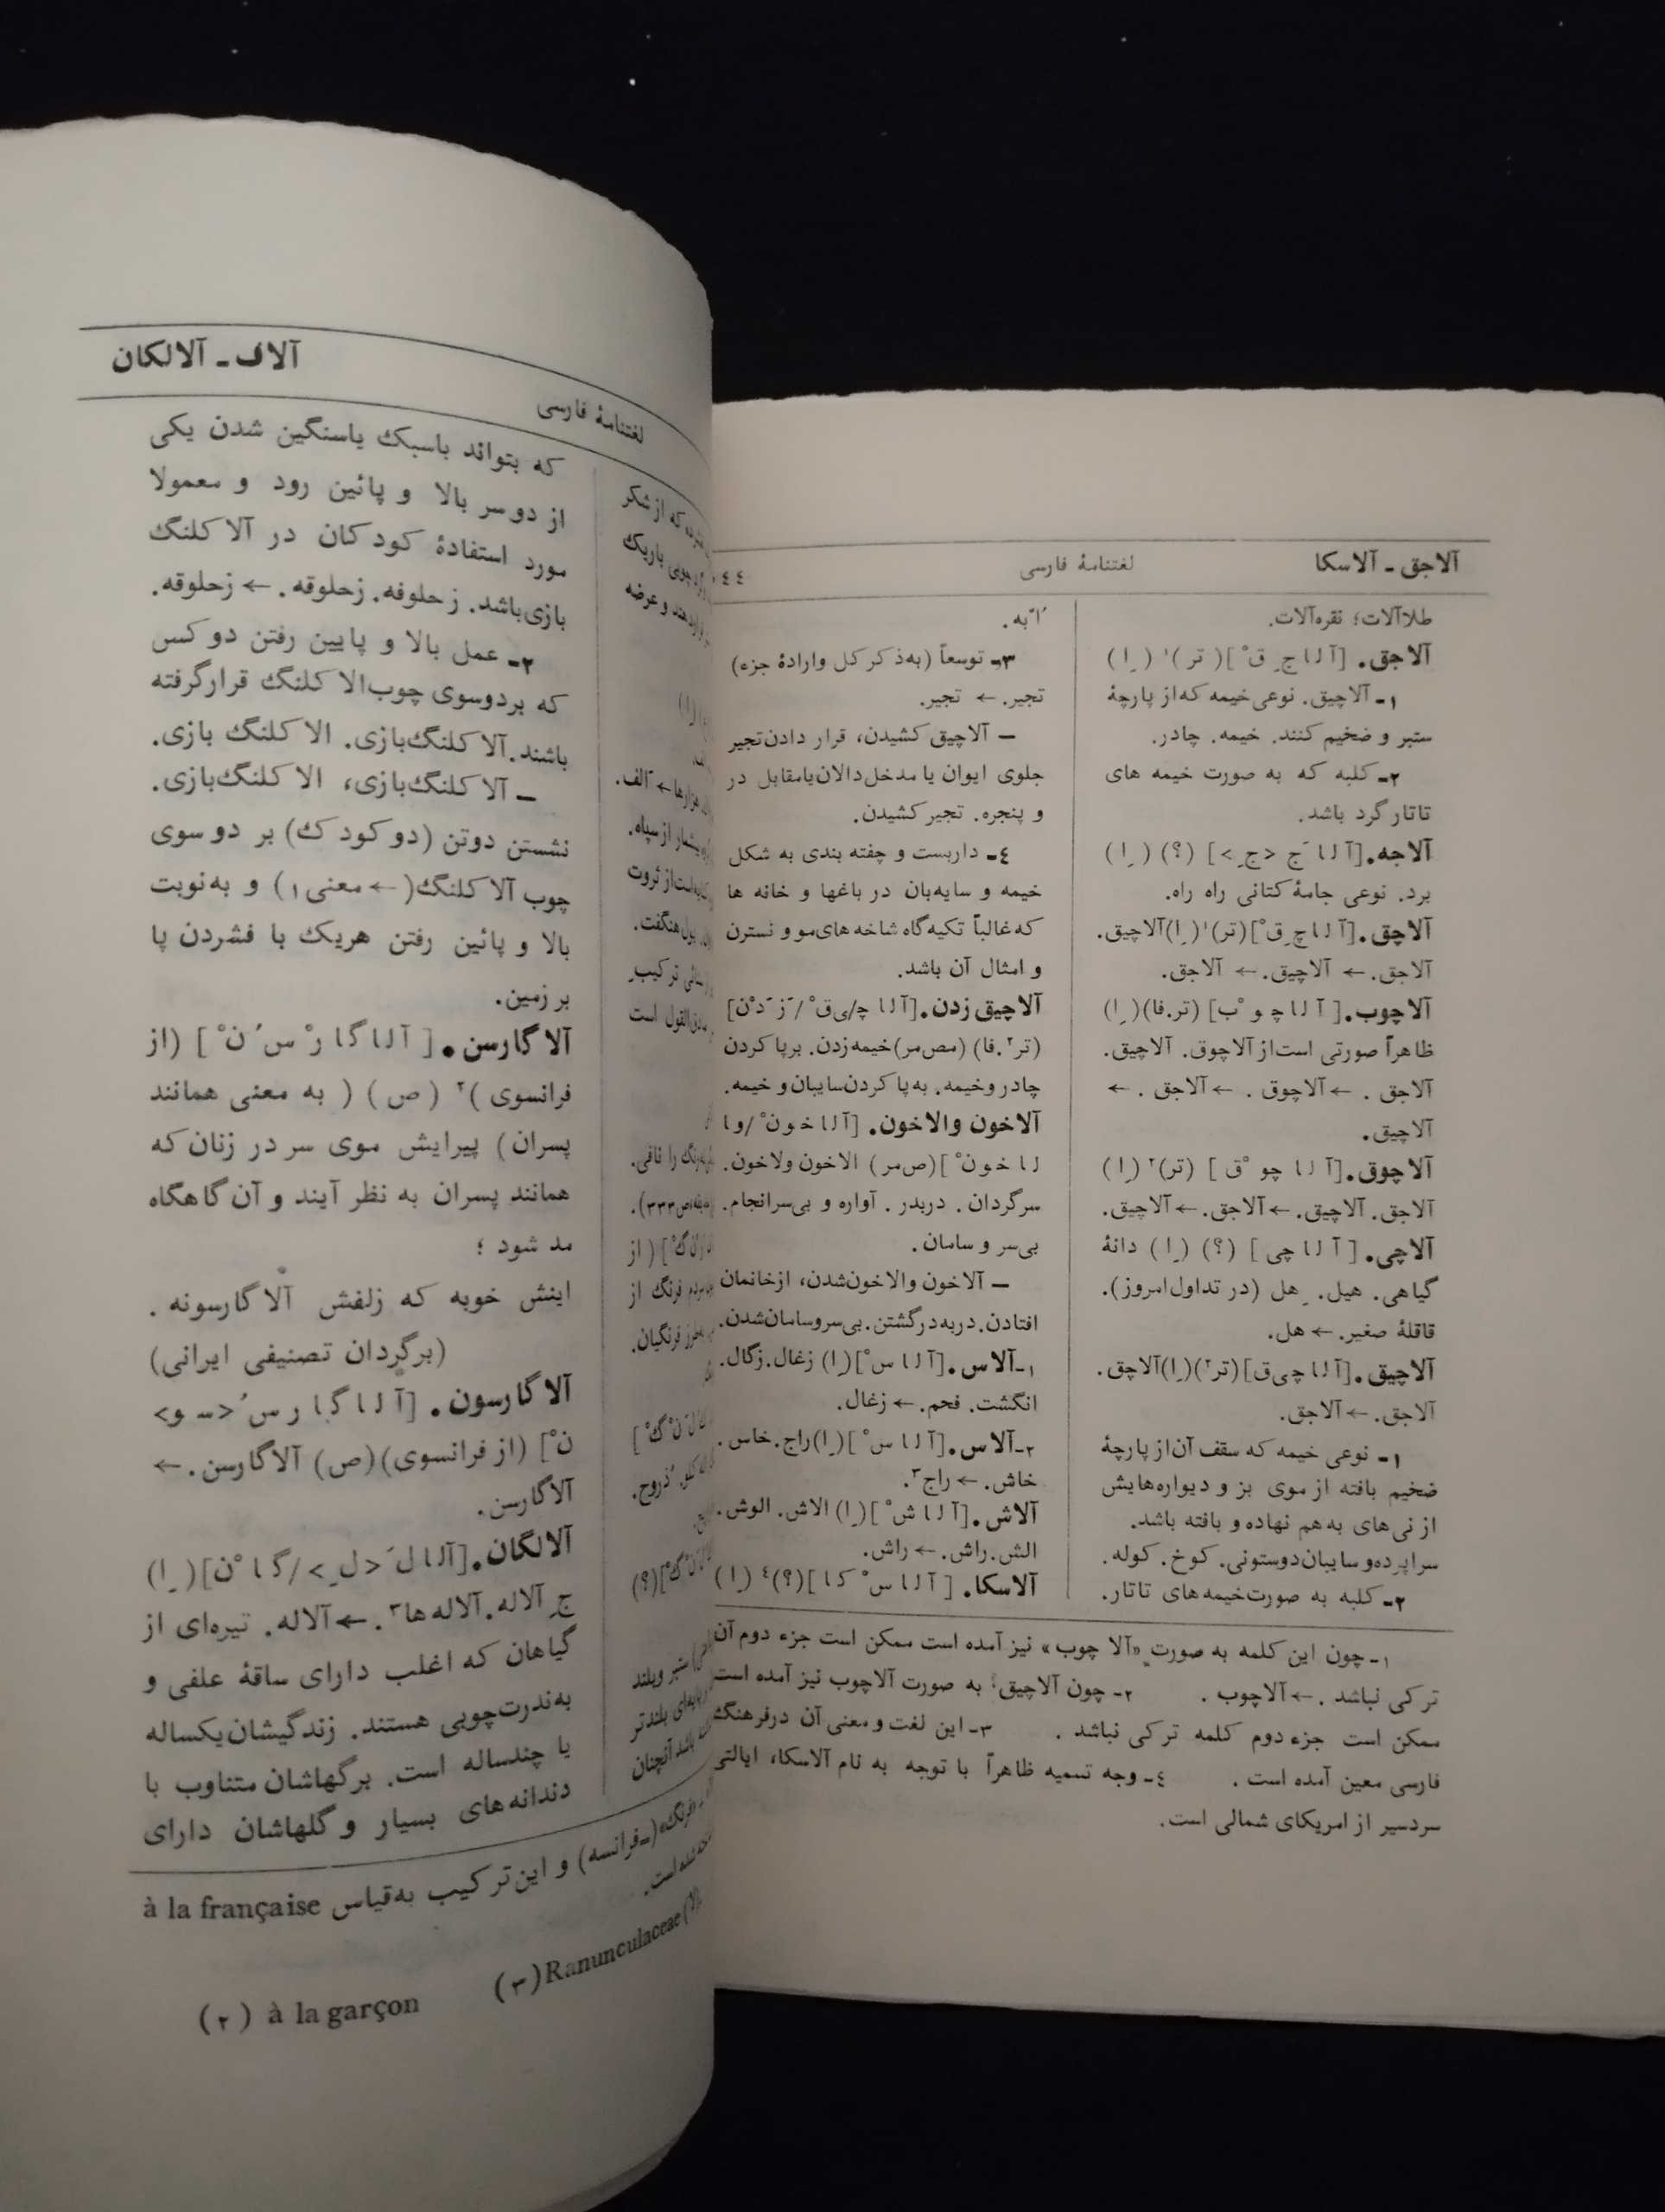 آلاجق ـ آلاسکا
لغتنامهٔ فارسی
٤٤
طلاآلات؛ نقره‌آلات.
آلاجق. [آ ل ا ج ِ ق ْ] ( تر )١ ( ِ ا )
١ـ آلاچیق. نوعی خیمه که از پارچهٔ
ستبر و ضخیم کنند. خیمه. چادر.
٢ـ کلبه که به صورت خیمه های
تاتار گرد باشد.
آلاجه. [آ ل ا َ ج <ج ِ>] (؟) ( ِ ا )
برد. نوعی جامهٔ کتانی راه راه.
آلاچق. [آ ل ا چ ِ ق ْ] (تر)١ ( ِ ا) آلاچیق.
آلاجق. ← آلاچیق. ← آلاجق.
آلاچوب. [ آ ل ا چ و ْ ب] (تر.فا) ( ِ ا)
ظاهراً صورتی است از آلاچوق. آلاچیق.
آلاجق . ← آلاچوق . ← آلاجق . ←
آلاچیق.
آلاچوق. [آ ل ا چو ْ ق ] (تر)٢ ( ِ ا)
آلاجق. آلاچیق. ← آلاجق. ← آلاچیق.
آلاچی. [ آ ل ا چی ] (؟) ( ِ ا ) دانهٔ
گیاهی. هیل. هِل (در تداول امروز).
قاقلهٔ صغیر. ← هل.
آلاچیق. [آ ل ا چی‌ق] (تر٢) ( ِ ا) آلاچق.
آلاجق. ← آلاجق.
١ـ نوعی خیمه که سقف آن از پارچهٔ
ضخیم بافته از موی بز و دیواره‌هایش
از نی‌های به‌هم نهاده و بافته باشد.
سراپرده و سایبان دوستونی. کوخ. کوله.
٢ـ کلبه به صورت خیمه‌های تاتار.
٣ـ توسعاً (به ذکر کل و ارادهٔ جزء)
تجیر. ← تجیر.
ـ آلاچیق کشیدن، قرار دادن تجیر
جلوی ایوان یا مدخل دالان یا مقابل در
و پنجره. تجیر کشیدن.
٤ـ داربست و چفته بندی به شکل
خیمه و سایه‌بان در باغها و خانه ها
که غالباً تکیه‌گاه شاخه های مو و نسترن
و امثال آن باشد.
آلاچیق زدن. [آ ل ا چ/ی‌ق ْ/ َ ز َ د ْ ن]
(تر٢.فا) (مص‌مر) خیمه زدن. برپا کردن
چادر و خیمه. به پا کردن سایبان و خیمه.
آلاخون والاخون. [آ ل ا خ و ن ْ /و ا
ل ا خ و ن ْ ] (ص‌مر) الاخون ولاخون.
سرگردان . دربدر . آواره و بی‌سرانجام.
بی‌سر و سامان.
ـ آلاخون والاخون شدن، از خانمان
افتادن. دربه‌در گشتن. بی‌سروسامان شدن.
١ـ آلاس. [آ ل ا س ْ] ( ِ ا) زغال. زگال.
انگشت. فحم. ← زغال.
٢ـ آلاس. [آ ل ا س ْ ] ( ِ ا) راج. خاس.
خاش. ← راج٣.
آلاش. [آ ل ا ش ْ] ( ِ ا) الاش. الوش.
الش. راش. ← راش.
آلاسکا. [ آ ل ا س ْ ک ا ] (؟)٤ ( ِ ا )
١ـ چون این کلمه به صورت «آلا چوب» نیز آمده است ممکن است جزء دوم آن
ترکی نباشد . ← آلاچوب . ٢ـ چون آلاچیق به صورت آلاچوب نیز آمده است
ممکن است جزء دوم کلمه ترکی نباشد . ٣ـ این لغت و معنی آن در فرهنگ
فارسی معین آمده است . ٤ـ وجه تسمیه ظاهراً با توجه به نام آلاسکا، ایالتی
سردسیر از امریکای شمالی است.
لغتنامهٔ فارسی
آلاف ـ آلالکان
که از شکر
چوبی باریک
دهند و عرضه
هزارها ← آلف.
بیشمار از سپاه.
است از ثروت
هنگفت.
ترکیب
القول است
را نافی.
ص٣٣٣).
] ( از
مردم فرنگ از
طرز فرنگیان.
ستبر و بلند
بلندتر
باشد آنچنان
که بتواند باسبک یاسنگین شدن یکی
از دو سر بالا و پائین رود و معمولا
مورد استفادهٔ کودکان در آلاکلنگ
بازی باشد. زحلوفه. زحلوقه. ← زحلوقه.
٢ـ عمل بالا و پایین رفتن دو کس
که بر دوسوی چوب الاکلنگ قرار گرفته
باشند. آلاکلنگ‌بازی. الاکلنگ بازی.
ـ آلاکلنگ‌بازی، الاکلنگ‌بازی.
نشستن دوتن (دو کودک) بر دو سوی
چوب آلاکلنگ (← معنی ١) و به‌نوبت
بالا و پائین رفتن هریک با فشردن پا
بر زمین.
آلاگارسن. [ آ ل ا گ ا ر ْ س ُ ن ْ ] (از
فرانسوی )٢ (ص ) ( به معنی همانند
پسران) پیرایش موی سر در زنان که
همانند پسران به نظر آیند و آن گاهگاه
مد شود ؛
اینش خوبه که زلفش آلاگارسونه .
(برگردان تصنیفی ایرانی)
آلاگارسون. [آ ل ا گ ا ر س ُ <س و>
ن ْ] (از فرانسوی) (ص) آلاگارسن. ←
آلاگارسن.
آلالگان. [آل ا ل َ <ل ِ>/گ ا ْ ن] ( ِ ا)
ج ِ آلاله. آلاله‌ها٣. ← آلاله. تیره‌ای از
گیاهان که اغلب دارای ساقهٔ علفی و
به‌ندرت چوبی هستند. زندگیشان یکساله
یا چندساله است. برگهاشان متناوب با
دندانه‌های بسیار و گلهاشان دارای
فرنگ» (ـ فرانسه) و این ترکیب به‌قیاس à la française
شده است.
(٢) à la garçon (٣) Ranunculaceae